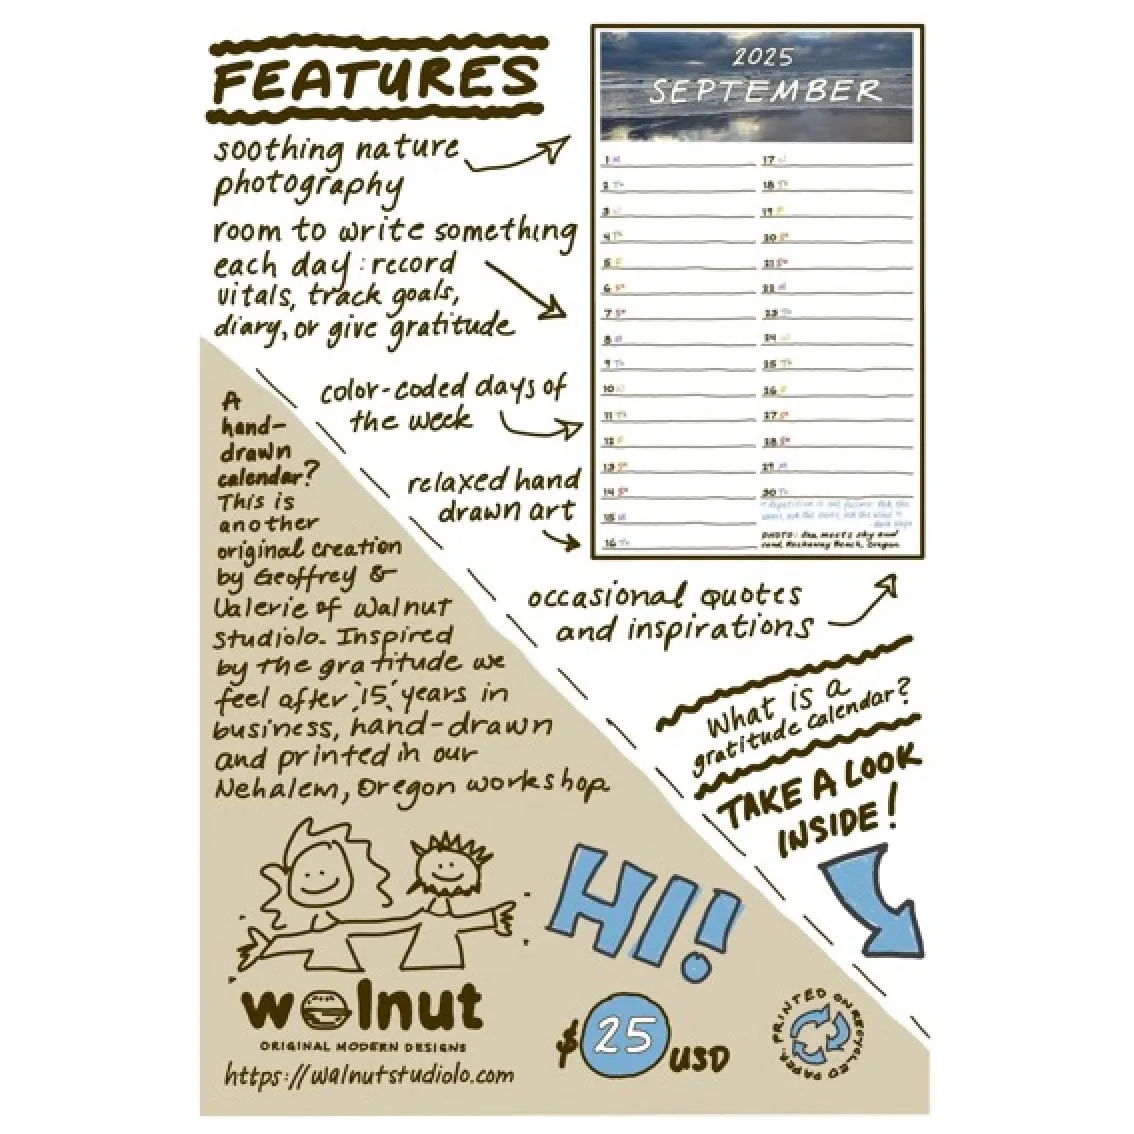 FEATURES
soothing nature
photography
room to write something
each day: record
vitals, track goals,
diary, or give gratitude
color-coded days of
the week
relaxed hand
drawn art
occasional quotes
and inspirations
2025
SEPTEMBER
1 M
2 Tu
3 W
4 Th
5 F
6 Sa
7 Su
8 M
9 Tu
10 W
11 Th
12 F
13 Sa
14 Su
15 M
16 Tu
17 W
18 Th
19 F
20 Sa
21 Su
22 M
23 Tu
24 W
25 Th
26 F
27 Sa
28 Su
29 M
30 Tu
PHOTO: Sea meets sky and
sand, Rockaway Beach, Oregon
What is a
gratitude calendar?
TAKE A LOOK
INSIDE!
A
hand-
drawn
calendar?
This is
another
original creation
by Geoffrey &
Valerie of Walnut
Studiolo. Inspired
by the gratitude we
feel after 15 years in
business, hand-drawn
and printed in our
Nehalem, Oregon workshop.
HI!
walnut
ORIGINAL MODERN DESIGNS
https://walnutstudiolo.com
$25 USD
PRINTED ON RECYCLED PAPER